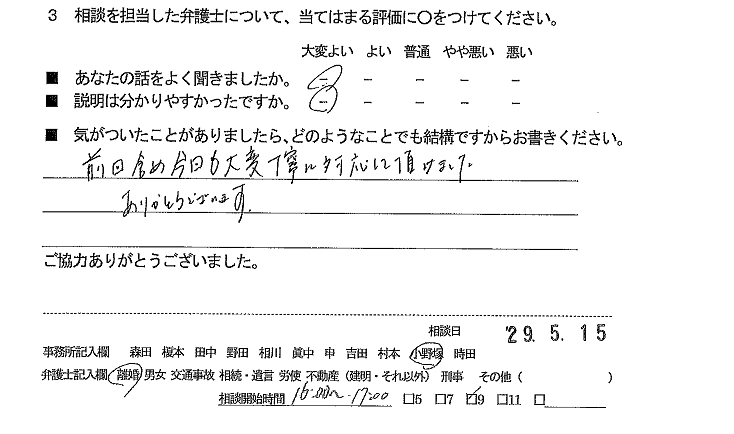 3 相談を担当した弁護士について、当てはまる評価に○をつけてください。
大変よい よい 普通 やや悪い 悪い
■ あなたの話をよく聞きましたか。 － － － － －
■ 説明は分かりやすかったですか。 － － － － －
■ 気がついたことがありましたら、どのようなことでも結構ですからお書きください。
前回含め今回も大変丁寧に対応して頂けました
ありがとうございます。
ご協力ありがとうございました。
相談日 '29. 5. 15
事務所記入欄 森田 榎本 田中 野田 相川 眞中 申 吉田 村本 小野塚 時田
弁護士記入欄 離婚 男女 交通事故 相続・遺言 労使 不動産（建明・それ以外） 刑事 その他（ ）
相談開始時間 16:00～17:00 □5 □7 ☑9 □11 □